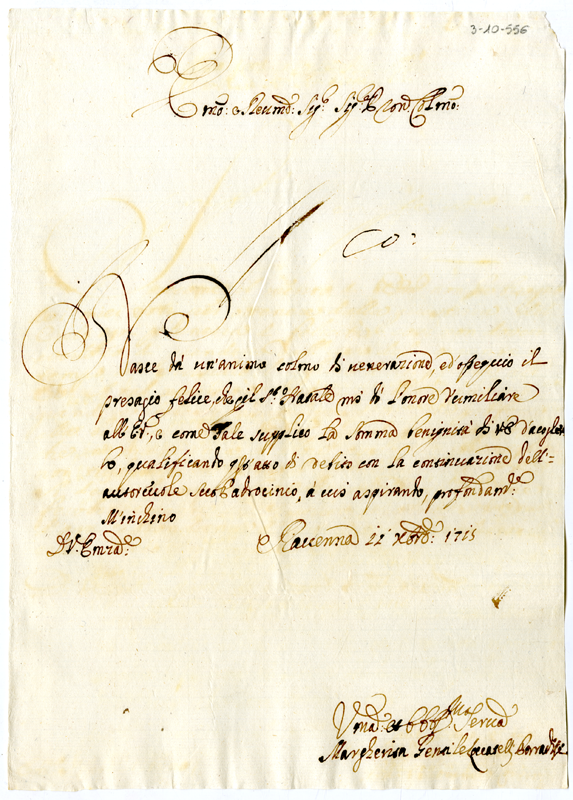 3-10-556
Emo: e Reumo: Sigr: Sigr: Pron Colmo:
Nasce da un'animo colmo di venerazione, ed ossequio il
presagio felice, che pil Sto: Natale mi dà l'onore d'umiliare
all' Em:, e come tale supplico la somma benignità di VE d'accoglier-
lo, qualificando qsto atto di debito con la continuazione dell'=
autoreuole suo Padrocinio, à cuì aspirando, profondamte:
M'inchino
D V: Emza:
Rauenna 22 Xbre: 1715
Vma: et obbma: Serua
Margherita Gentile